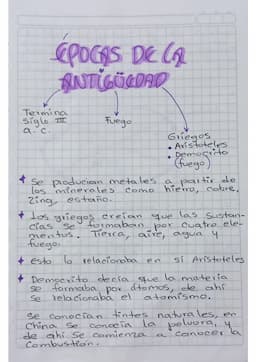 ÉPOCAS DE LA
ANTIGÜEDAD
Termina
siglo III
a.c.
Fuego
Griegos
• Aristóteles
• Demócrito
(fuego)
Se producian metales a partir de
los minerales como hierro, cobre,
Zing, estaño.
Los griegos creían que las sustan-
cias se formaban por cuatro ele-
mentos. Tierra, aire, agua y
fuego.
esto lo relacionaba en sí Aristóteles
Demócrito decía que la materia
se formaba por átomos, de ahí
se relacionaba el atomismo.
Se conocían tintes naturales, en
China se conocía la polvora, y
de ahí se comienza a conocer la
Combustión.